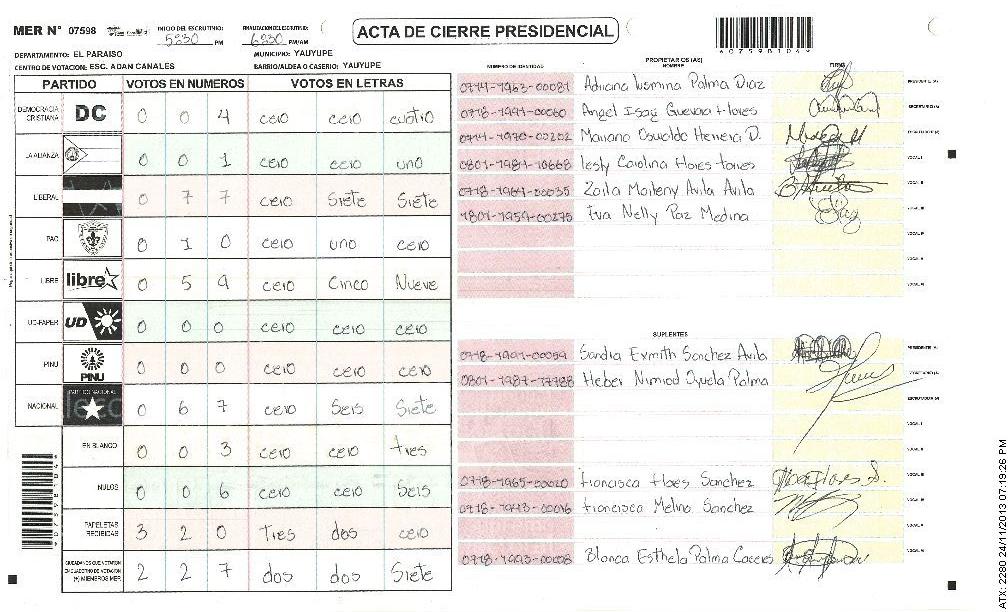 MER N° 07598 INICIO DEL ESCRUTINIO: 5:30 PM FINALIZACION DEL ESCRUTINIO: 6:30 PM/AM
ACTA DE CIERRE PRESIDENCIAL
DEPARTAMENTO: EL PARAISO MUNICIPIO: YAUYUPE
CENTRO DE VOTACION: ESC. ADAN CANALES BARRIO/ALDEA O CASERIO: YAUYUPE
PARTIDO VOTOS EN NUMEROS VOTOS EN LETRAS
DEMOCRACIA CRISTIANA DC 0 0 4 cero cero cuatro
LA ALIANZA 0 0 1 cero cero uno
LIBERAL 0 7 7 cero Siete Siete
PAC 0 1 0 cero uno cero
LIBRE libre 0 5 9 cero Cinco Nueve
UD-FAPER UD 0 0 0 cero cero cero
PINU PINU 0 0 0 cero cero cero
NACIONAL PARTIDO NACIONAL 0 6 7 cero Seis Siete
EN BLANCO 0 0 3 cero cero tres
NULOS 0 0 6 cero cero Seis
PAPELETAS RECIBIDAS 3 2 0 Tres dos cero
CIUDADANOS QUE VOTARON EN CUADERNO DE VOTACION (+) MIEMBROS MER 2 2 7 dos dos Siete
PROPIETARIOS (AS)
NUMERO DE IDENTIDAD NOMBRE FIRMA
Adriana Ismina Palma Diaz PRESIDENTE (A)
0718-1991-00060 Angel Isaí Guevara Flores SECRETARIO (A)
0714-1970-00202 Mariano Oswaldo Herrera D. ESCRUTADOR (A)
0801-1981-10668 lesly Carolina Flores torres VOCAL I
0718-1964-00035 Zoila Marleny Avila Avila VOCAL II
1801-1959-00275 Eva Nelly Paz Medina VOCAL III
VOCAL IV
VOCAL V
VOCAL VI
SUPLENTES
0718-1991-00059 Sandra Ermith Sanchez Avila PRESIDENTE (A)
Heber Nimrod Palma SECRETARIO (A)
ESCRUTADOR (A)
VOCAL I
VOCAL II
0718-1965-00020 francisca flores Sanchez VOCAL III
0718-1993-00016 francisca Melina Sanchez VOCAL IV
VOCAL V
0718-1993-00008 Blanca Esthela Palma Caceres VOCAL VI
ATX: 2280 24/11/2013 07:19:26 PM